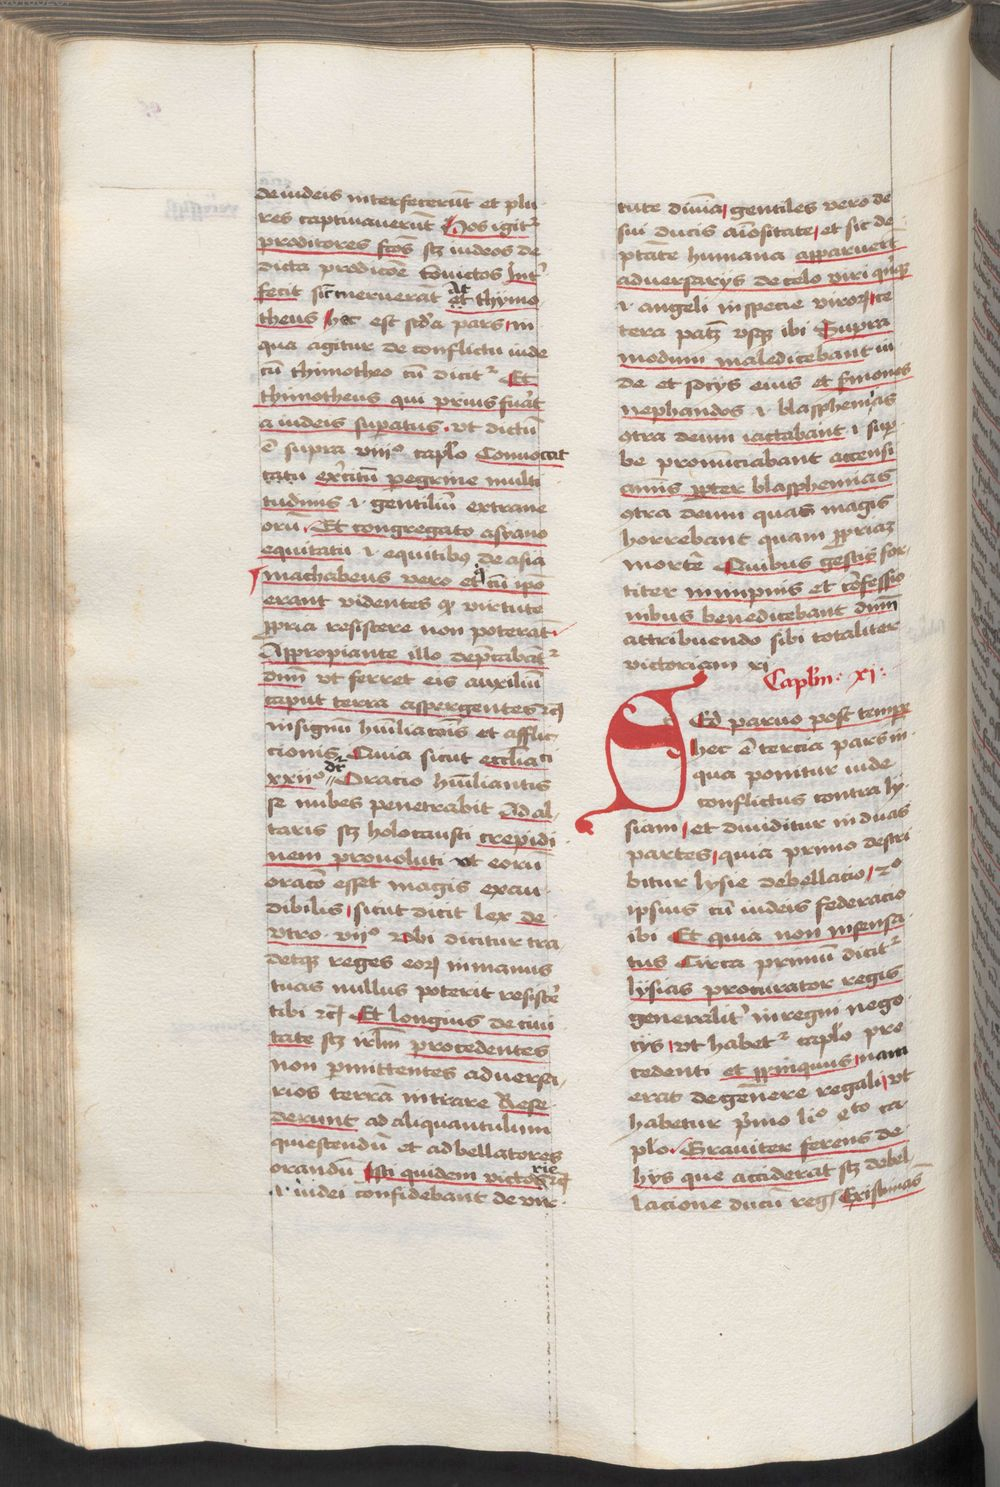 de iudeis interfecerūt et plu
res captiuauerūt Hos igit᷑
proditores fcōs sʒ iudeos de
dicta prodicōe cōuictos Int᷑
fecit sic᷑ meruerāt At et thymo
theus hec est scd̄a pars in
qua agitur de conflictu iude
cū thimotheo cū dicit᷑ Et
thimotheus qui prius fuāt
a iudeis supatus vt dictū
ē supra viiiᵒ caplo Conuocat
tatu exc̄itū peregrine multi
tudinis ⁊ gentiliū extrane
orū Et congregato asyano
equitatu ⁊ equitibꝰ de asia
machabeus vero et q cū ipō
erant videntes ꝙ virtute
ꝓpria resistere non poterat
Appropiante illo dep̄cabāt᷑
dnm̄ vt ferret eis auxiliū
caput terra aspergentes ⁊cꝫ
in signū hūiliacōis et afflic
cionis Quia sicut ecclīaci
xxxiiᵒ dr̄ Oracio hūiliantis
se nubes penetrabit Ad al
taris sʒ holocausti crepidi
nem prouoluti vt eorū
oracō esset magis exau
dibilis sicut dicit lex de
vtro viiᵒ vbi dicitur tra
detqꝫ reges eoꝝ in manus
tuas nullus poterit resistē
tibi ⁊cꝫ Et longius de ciui
tate sʒ irlm̄ procedentes
non p̱mittentes aduersa
rios terrā intrare Rese
derunt ad aliquantulum
quiescendū et ad bellatores
orandū Isti quidem victorie ⁊cꝫ
.⁊ iudei confidebant de vir
tute diuīa gentiles vero de
sui ducis aīositate et sic de
ptāte humana apparuerūt
aduersarijs de celo viri qnqꝫ
⁊ angeli in specie viroꝝ ce
tera patꝫ vsqꝫ ibi Supra
modum maledicebant iu
de et socijs eius et sermones
nephandos ⁊ blasphemias
ꝯtra deum iactabant ⁊ sup
be pronūciabant accensi
animis ꝓpter blasphemias
ꝯtra deum quas magis
horrebant quam ꝓpriaꝫ
mortē Quibus gestis for
titer in impnis et cōfessio
nibus benedicebant dnm̄
attribuendo sibi totaliter
victoriam xi
Caplm̄: xj:
Sed paruo post tempe
hec ē tercia pars in
qua ponitur iude
conflictus contra ly
siam et diuiditur in duas
partes quia primo descri
bitur lysie debellacio ⁊ᵒ
ipsius cū iudeis federacio
ibi Et quia non insensa
tus Circa primū dicit᷑
lysias procurator regis
generalit᷑ in regni nego
cijs vt habet᷑ caplo pre
cedenti et ꝓpinquus nam
erat de genere regali vt
habetur pͥmo liᵒ eto ca
plo Grauiter ferens de
hijs que acciderat sʒ dobel
lacione ducū reg Existimās